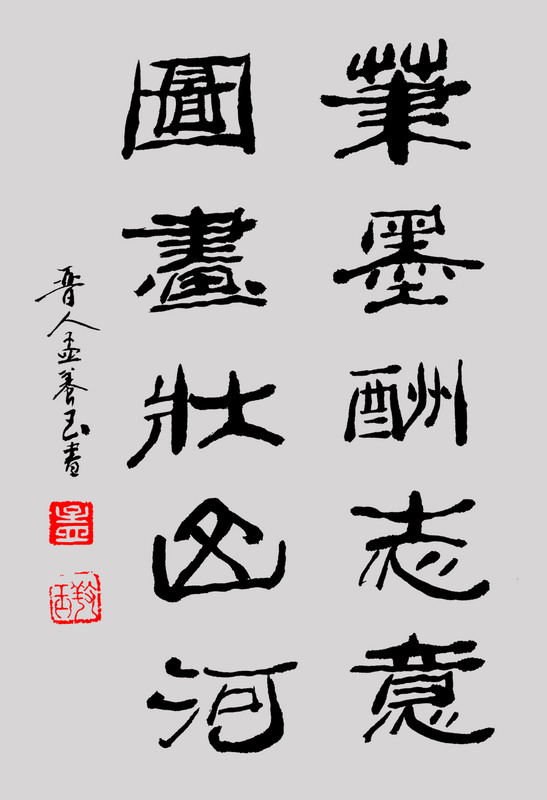 筆墨酬志意
圖畫壯山河
晉人孟養玉書
孟